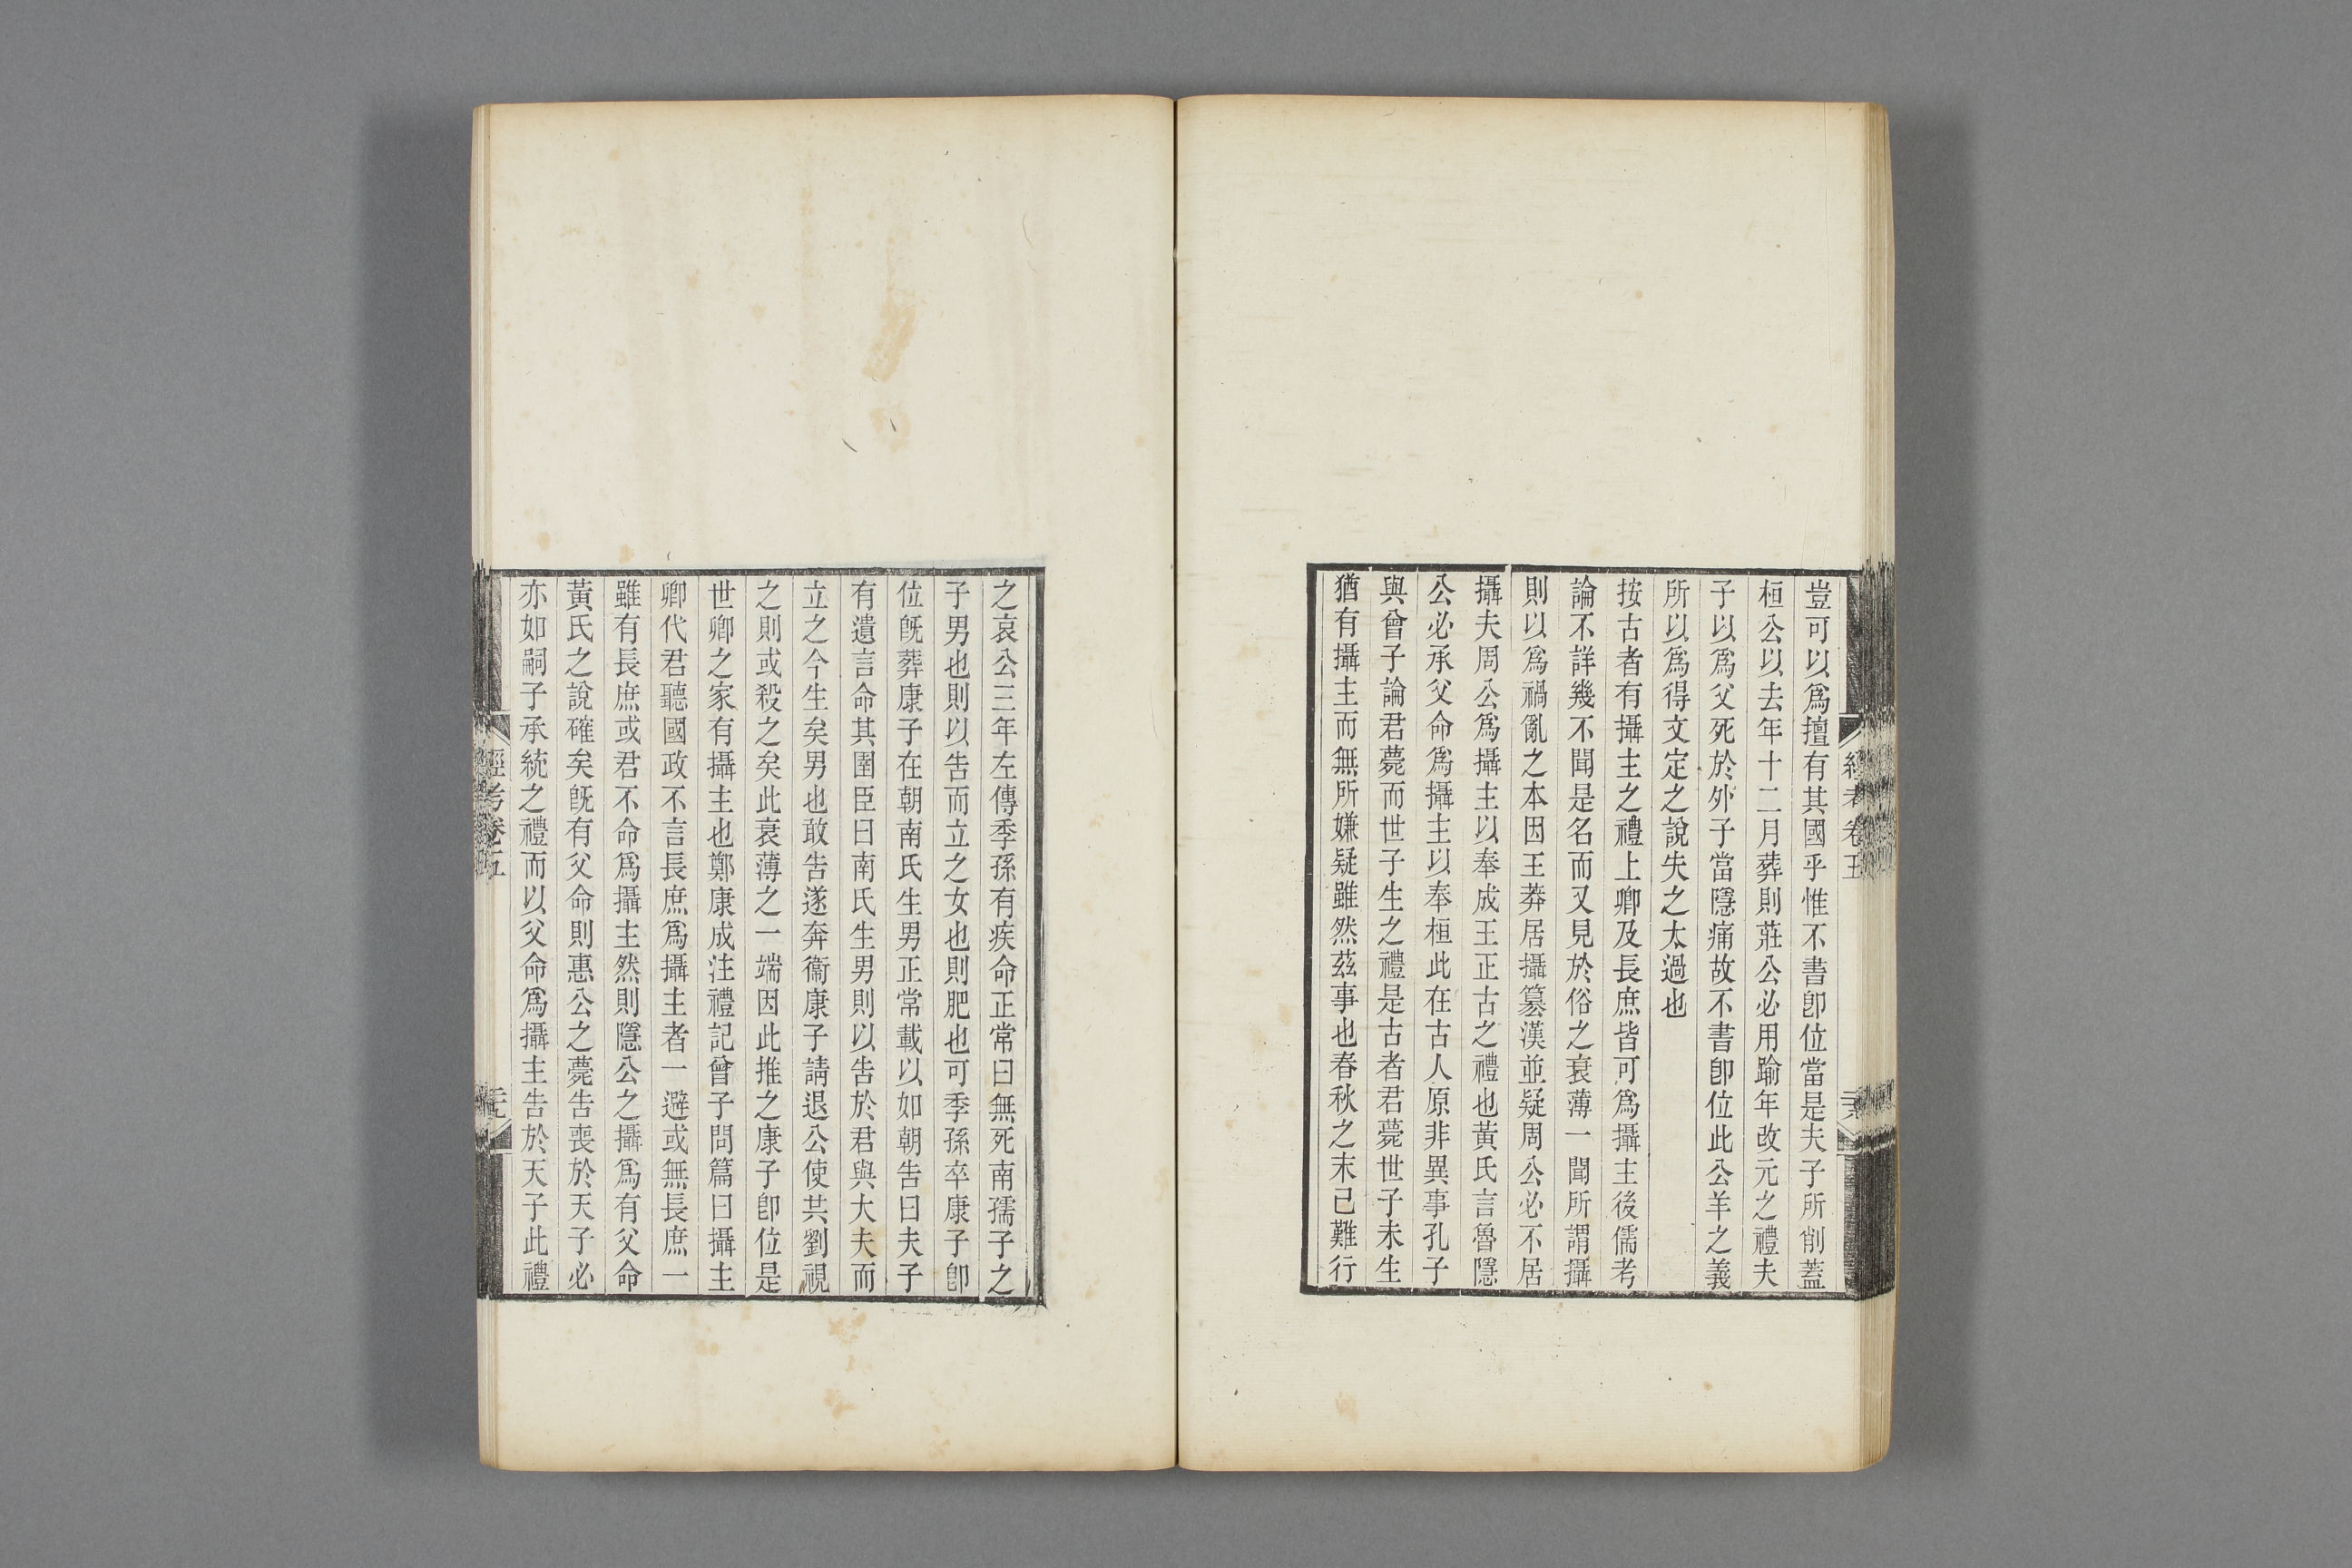 豈可以爲擅有其國乎惟不書卽位當是夫子所削蓋
桓公以去年十二月葬則莊公必用踰年改元之禮夫
子以爲父死於外子當隱痛故不書卽位此公羊之義
所以爲得文定之說失之太過也
按古者有攝主之禮上卿及長庶皆可爲攝主後儒考
論不詳幾不聞是名而又見於俗之衰薄一聞所謂攝
則以爲禍亂之本因王莽居攝簒漢並疑周公必不居
攝夫周公爲攝主以奉成王正古之禮也黃氏言魯隱
公必承父命爲攝主以奉桓此在古人原非異事孔子
與曾子論君薨而世子生之禮是古者君薨世子未生
猶有攝主而無所嫌疑雖然茲事也春秋之末已難行
經考卷五
之哀公三年左傳季孫有疾命正常曰無死南孺子之
子男也則以告而立之女也則肥也可季孫卒康子卽
位旣葬康子在朝南氏生男正常載以如朝告曰夫子
有遺言命其圉臣曰南氏生男則以告於君與大夫而
立之今生矣男也敢告遂奔衞康子請退公使共劉視
之則或殺之矣此衰薄之一端因此推之康子卽位是
世卿之家有攝主也鄭康成注禮記曾子問篇曰攝主
卿代君聽國政不言長庶爲攝主者一避或無長庶一
雖有長庶或君不命爲攝主然則隱公之攝爲有父命
黃氏之說確矣旣有父命則惠公之薨告喪於天子必
亦如嗣子承統之禮而以父命爲攝主告於天子此禮
經考卷五